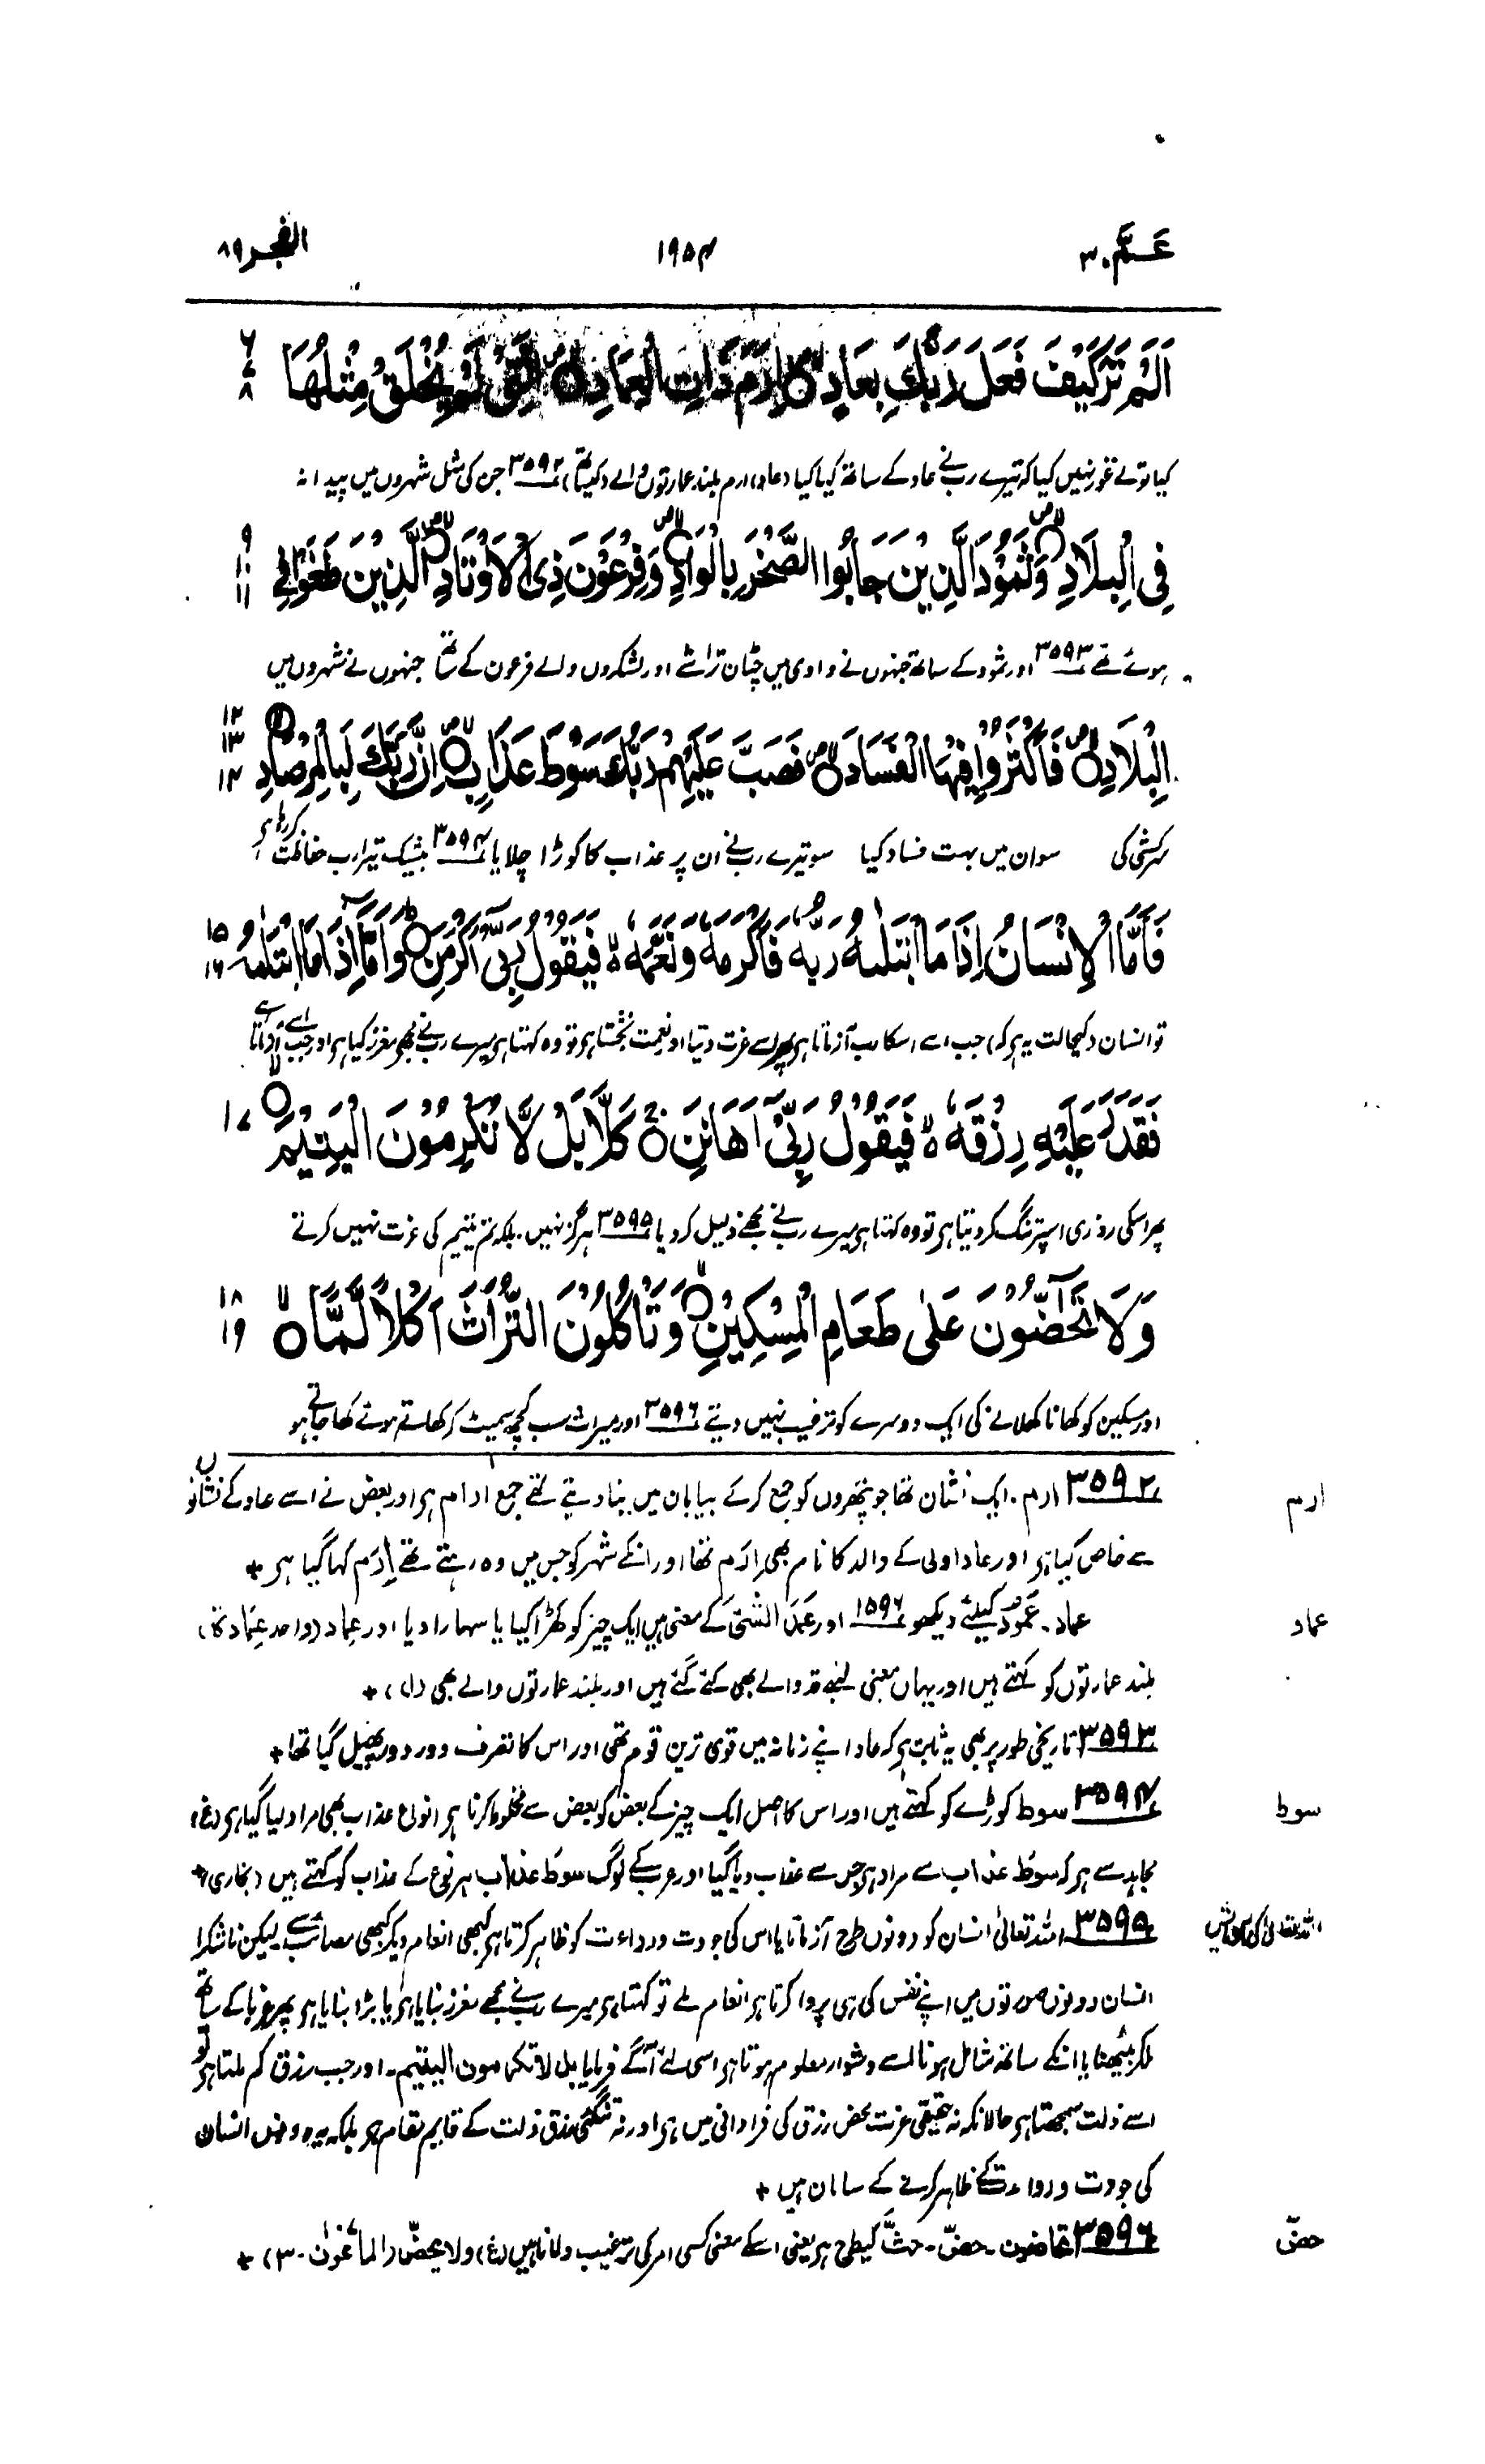 عَمَّ ۳۰
۱۹۵۴
الفجر ۸۹
اَلَمْ تَرَ كَيْفَ فَعَلَ رَبُّكَ بِعَادٍ اِرَمَ ذَاتِ الْعِمَادِ الَّتِيْ لَمْ يُخْلَقْ مِثْلُهَا
۶ ۷ ۸
کیا تونے غور نہیں کیا کہ تیرے رب نے عاد کے ساتھ کیا کیا (عاد) ارم بلند عمارتوں والے (کیساتھ) ۳۵۹۲ جن کی مثل شہروں میں پیدا نہ
فِي الْبِلَادِ وَثَمُوْدَ الَّذِيْنَ جَابُوا الصَّخْرَ بِالْوَادِ وَفِرْعَوْنَ ذِي الْاَوْتَادِ الَّذِيْنَ طَغَوْا فِي
۹ ۱۰ ۱۱
ہوئے تھے ۳۵۹۳ اور ثمود کے ساتھ جنہوں نے وادی میں چٹان تراشے اور لشکروں والے فرعون کے ساتھ جنہوں نے شہروں میں
الْبِلَادِ فَاَكْثَرُوْا فِيْهَا الْفَسَادَ فَصَبَّ عَلَيْهِمْ رَبُّكَ سَوْطَ عَذَابٍ اِنَّ رَبَّكَ لَبِالْمِرْصَادِ
۱۲ ۱۳ ۱۴
سرکشی کی سو ان میں بہت فساد کیا سو تیرے رب نے ان پر عذاب کا کوڑا چلایا ۳۵۹۴ بیشک تیرا رب حفاظت کر رہا ہے
فَاَمَّا الْاِنْسَانُ اِذَا مَا ابْتَلٰىهُ رَبُّهٗ فَاَكْرَمَهٗ وَنَعَّمَهٗ فَيَقُوْلُ رَبِّيْٓ اَكْرَمَنِ وَاَمَّآ اِذَا مَا ابْتَلٰىهُ
۱۵ ۱۶
تو انسان (کی حالت یہ ہے کہ) جب اسے اسکا رب آزماتا ہے پھر اسے عزت دیتا اور نعمت بخشتا ہے تو وہ کہتا ہے میرے رب نے مجھے معزز کیا ہے اور جب اسے آزماتا ہے
فَقَدَرَ عَلَيْهِ رِزْقَهٗ فَيَقُوْلُ رَبِّيْٓ اَهَانَنِ كَلَّا بَلْ لَّا تُكْرِمُوْنَ الْيَتِيْمَ
۱۷
پھر اسکی روزی اسپر تنگ کر دیتا ہے تو وہ کہتا ہے میرے رب نے مجھے ذلیل کر دیا ۳۵۹۵ ہرگز نہیں. بلکہ تم یتیم کی عزت نہیں کرتے
وَلَا تَحٰٓضُّوْنَ عَلٰى طَعَامِ الْمِسْكِيْنِ وَتَاْكُلُوْنَ التُّرَاثَ اَكْلًا لَّمًّا
۱۸ ۱۹
اور مسکین کو کھانا کھلانے کی ایک دوسرے کو ترغیب نہیں دیتے ۳۵۹۶ اور میراث سب کچھ سمیٹ کر کھاتے ہوئے کھا جاتے ہو
ارم
۳۵۹۲ ارم. ایک نشان تھا جو پتھروں کو جمع کرکے بیابان میں بنا دیتے تھے جمع ارام ہے اور بعض نے اسے عاد کے نشانوں
سے خاص کیا ہے اور عاد اولی کے والد کا نام بھی اِرَم تھا اور انکے شہر کو جس میں وہ رہتے تھے اِرَم کہا گیا ہے +
عماد
عماد. عَمود کیلئے دیکھو ۱۵۹۶ اور عَمَدَ الشیَٔ کے معنی ہیں ایک چیز کو کھڑا کیا یا سہارا دیا اور عِماد (واحد عِمَادَۃ)
بلند عمارتوں کو کہتے ہیں اور یہاں معنی لمبے قد والے بھی کئے گئے ہیں اور بلند عمارتوں والے بھی (ل) +
۳۵۹۳ تاریخی طور پر بھی یہ ثابت ہے کہ عاد اپنے زمانہ میں قوی ترین قوم تھی اور اس کا تصرف دور دور پھیل گیا تھا +
سوط
۳۵۹۴ سوط کوڑے کو کہتے ہیں اور اس کا اصل ایک چیز کے بعض کو بعض سے مخلوط کرنا ہے انواع عذاب بھی مراد لیا گیا ہے (غ)
مجاہد سے ہے کہ سوط عذاب سے مراد ہے جس سے عذاب دیا گیا اور عرب کے لوگ سوط عذاب ہر نوع کے عذاب کو کہتے ہیں (بخاری) +
اللہ تعالیٰ کی
۳۵۹۵ اللہ تعالیٰ انسان کو دونوں طرح آزماتا یا اس کی جودت ورداءت کو ظاہر کرتا ہے کبھی انعام دیکر کبھی مصائب سے لیکن ناشکرا
انسان دونوں صورتوں میں اپنے نفس کی ہی پروا کرتا ہے انعام ملے تو کہتا ہے میرے رب نے مجھے معزز بنایا ہے یا بڑا بنایا ہے پھر غربا کے ساتھ
ملکر بیٹھنا یا انکے ساتھ شامل ہونا اسے دشوار معلوم ہوتا ہے اسی لئے آگے فرمایا بل لا تکرمون الیتیم. اور جب رزق کم ملتا ہے تو
اسے ذلت سمجھتا ہے حالانکہ نہ حقیقی عزت محض رزق کی فراوانی میں ہے اور نہ تنگئی رزق ذلت کے قایم مقام ہے بلکہ یہ دونوں انسان
کی جودت و رداءت کے ظاہر کرنے کے سامان ہیں +
حضّ
۳۵۹۶ تحاضون. حضّ. حثّ کیطرح ہے یعنی اسکے معنی کسی امر کی ترغیب دلانا ہیں (غ) ولا یحضّ (الماعون. ۳) +